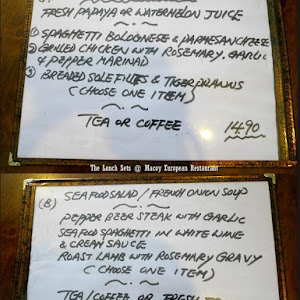 FRESH PAPAYA OR WATERMELON JUICE
① SPAGHETTI BOLOGNESE & PARMESAN CHEESE
② GRILLED CHICKEN WITH ROSEMARY, GARLIC
& PEPPER MARINAD
③ BREADED SOLE FILLES & TIGER PRAWNS
(CHOOSE ONE ITEM)
TEA OR COFFEE 1490
The Lunch Sets @ Macey European Restaurant
(B) SEAFOOD SALAD / FRENCH ONION SOUP
PEPPER BEER STEAK WITH GARLIC
SEAFOOD SPAGHETTI IN WHITE WINE
& CREAM SAUCE
ROAST LAMB WITH ROSEMARY GRAVY
(CHOOSE ONE ITEM)
TEA/COFFEE OR FRESH